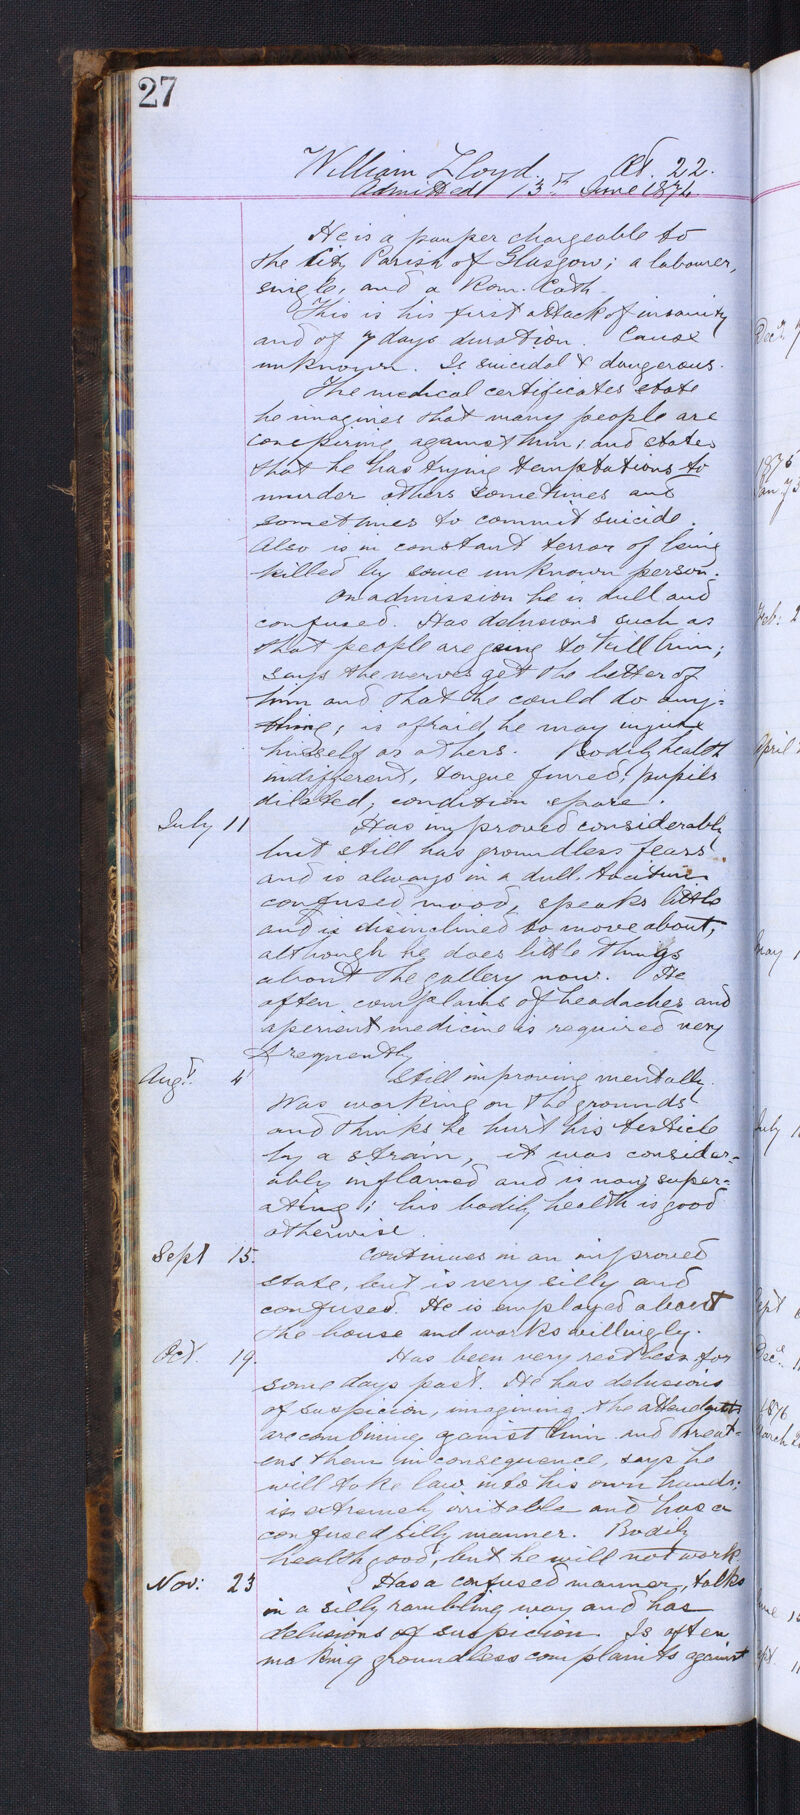 27
William Lloyd. Æt. 22.
Admitted 13th June 1874
He is a pauper chargeable to
the City Parish of Glasgow; a labourer,
single, and a Rom. Cath.
This is his first attack of insanity
and of 7 days duration. Cause
unknown. Is suicidal & dangerous.
The medical certificates state
he imagines that many people are
conspiring against him; and states
that he has trying temptations to
murder others sometimes and
sometimes to commit suicide.
Also is in constant terror of being
killed by some unknown person.
On admission he is dull and
confused. Has delusions such as
that people are going to kill him;
says the nerves get the better of
him and that he could do any-
thing; is afraid he may injure
himself or others. Bodily health
indifferent, tongue furred; pupils
dilated, condition spare.
July 11 Has improved considerably
but still has groundless fears
and is always in a dull, taciturn
confused mood, speaks little
and is disinclined to move about,
although he does little things
about the gallery now. He
often complains of headaches and
aperient medicine is required very
frequently
Augt. 4 Still improving mentally.
Was working on the grounds
and thinks he hurt his testicle
by a strain, it was consider-
ably inflamed and is now super-
ating; his bodily health is good
otherwise.
Sept 15. Continues in an improved
state, but is very silly and
confused. He is employed about
the house and works willingly.
Oct. 19. Has been very restless for
some days past. He has delusions
of suspicion, imagining the attendants
are combining against him and threat-
ens them in consequence, says he
will take law into his own hands;
is extremely irritable and has a
confused silly manner. Bodily
health good, but he will not work
Nov: 23 Has a confused manner, talks
in a silly rambling way and has
delusions of suspicion. Is often
making groundless complaints against
Decr. 7
1875
Jany 3
Feb: 2
April 2
May 1
July 1
Sept
Decr. 1
1876
March 2
June 1
Sept 11